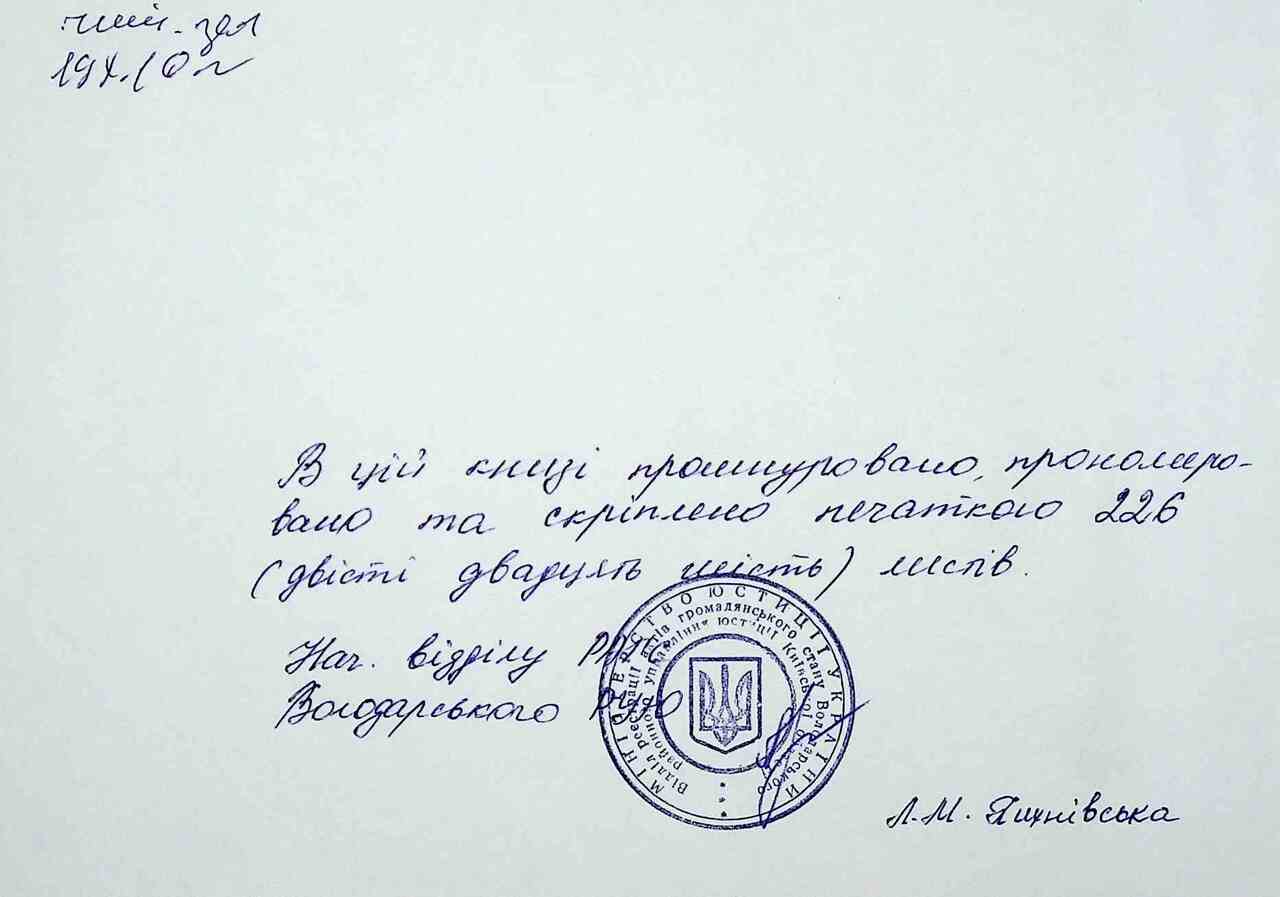 В цій книзі прошнуровано, прономеро-
вано та скріплено печаткою 226
(двісті двадцять шість) листів.
Нач. відділу РАЦС
Володарського РУЮ
МІНІСТЕРСТВО ЮСТИЦІЇ УКРАЇНИ
Відділ реєстрації актів громадянського стану Володарського
районного управління юстиції Київської області
Л.М. Пихнівська